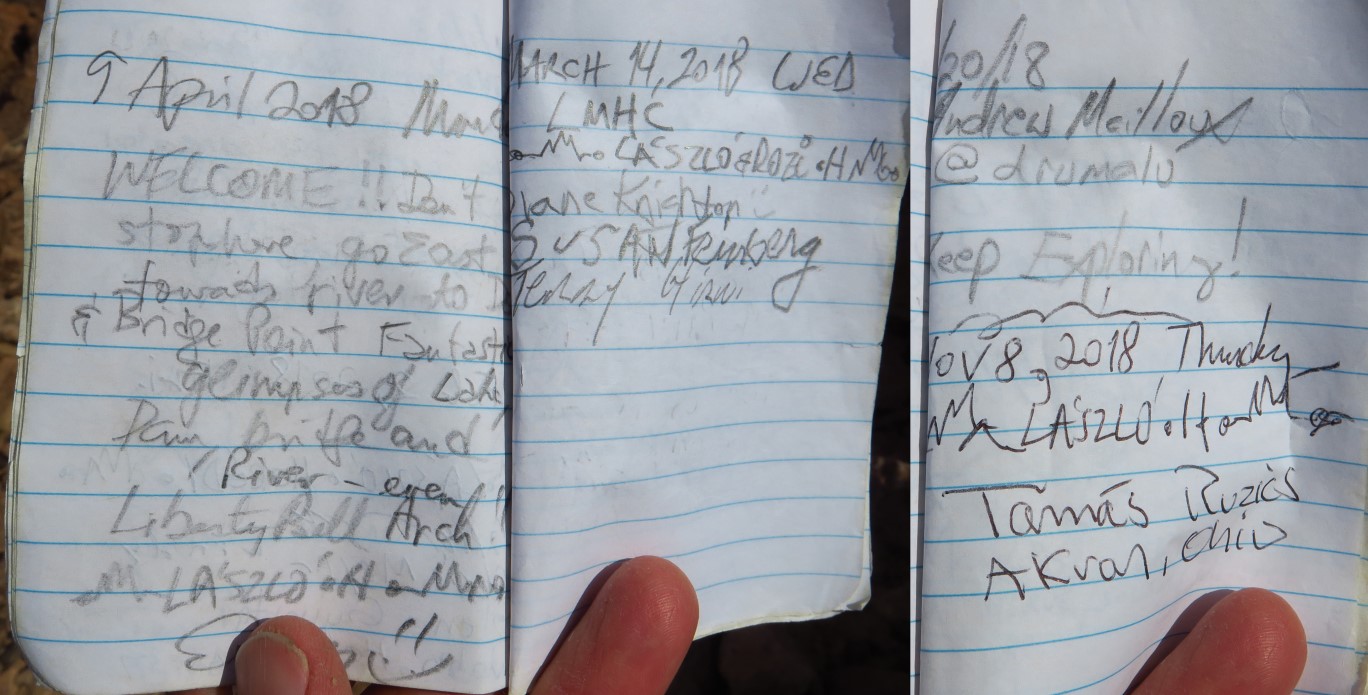 9 April 2018
WELCOME!! Don't
stop here, go East
towards river to
& Bridge Point Fantast
glimpses of Lake
and
River - even
Liberty Bell Arch!
LÁSZLÓ
MARCH 14, 2018 WED
LMHC
LÁSZLÓ & ROZI
Diane Knighton
SUSAN Feinberg
20/18
Andrew Mailloux
@drumalu
Keep Exploring!
Nov 8, 2018 Thursday
LÁSZLÓ
Tamás Ruzics
AKron, Ohio